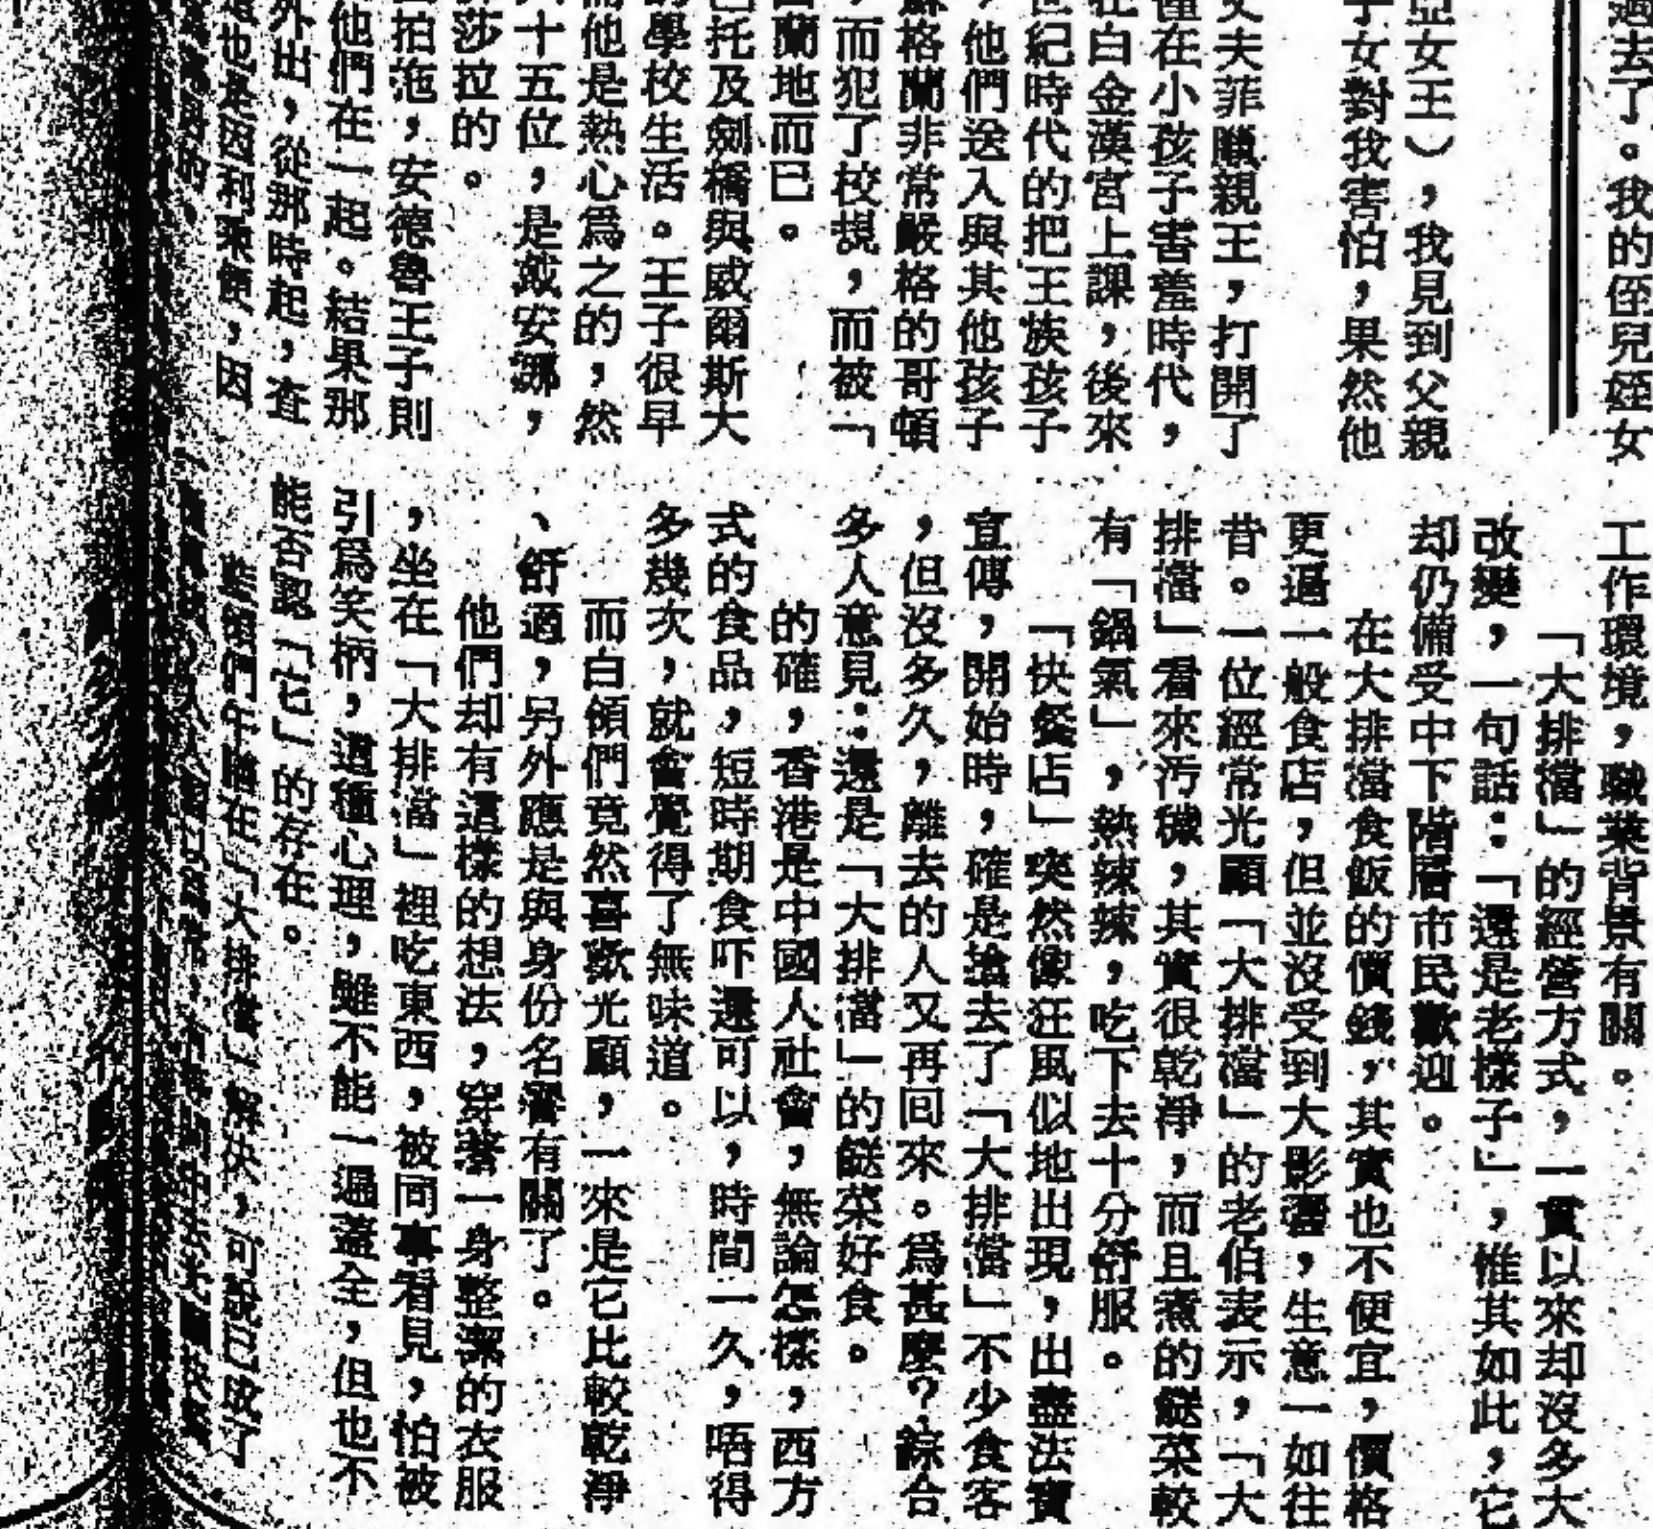 過去了。我的侄兒姪女
亞女王），我見到父親
子女對我害怕，果然他
丈夫菲臘親王，打開了
僅在小孩子害羞時代，
在白金漢宮上課，後來
世紀時代的把王族孩子
，他們送入與其他孩子
蘇格蘭非常嚴格的哥頓
，而犯了校規，而被「
蘭地而已。
托及劍橋與威爾斯大
的學校生活。王子很早
而他是熱心爲之的，然
十五位，是戴安娜，
莎拉的。
拍拖，安德魯王子則
他們在一起。結果那
外出，從那時起，查
也是因和
工作環境，職業背景有關。
「大排檔」的經營方式，一貫以來却沒多大
改變，一句話：「還是老樣子」，惟其如此，它
却仍備受中下階層市民歡迎。
在大排檔食飯的價錢，其實也不便宜，價格
更逼一般食店，但並沒受到大影響，生意一如往
昔。一位經常光顧「大排檔」的老伯表示，「大
排檔」看來汚穢，其實很乾淨，而且煮的餸菜較
有「鍋氣」，熱辣辣，吃下去十分舒服。
「快餐店」突然像狂風似地出現，出盡法寶
宣傳，開始時，確是搶去了「大排檔」不少食客
，但沒多久，離去的人又再回來。爲甚麼？綜合
多人意見：還是「大排檔」的餸菜好食。
的確，香港是中國人社會，無論怎樣，西方
式的食品，短時期食吓還可以，時間一久，唔得
多幾次，就會覺得了無味道。
而白領們竟然喜歡光顧，一來是它比較乾淨
、舒適，另外應是與身份名譽有關了。
他們却有這樣的想法，穿著一身整潔的衣服
，坐在「大排檔」裡吃東西，被同事看見，怕被
引爲笑柄，這種心理，雖不能一遍蓋全，但也不
能否認「它」的存在。
們午膳在「大排檔」解決，可說已成了